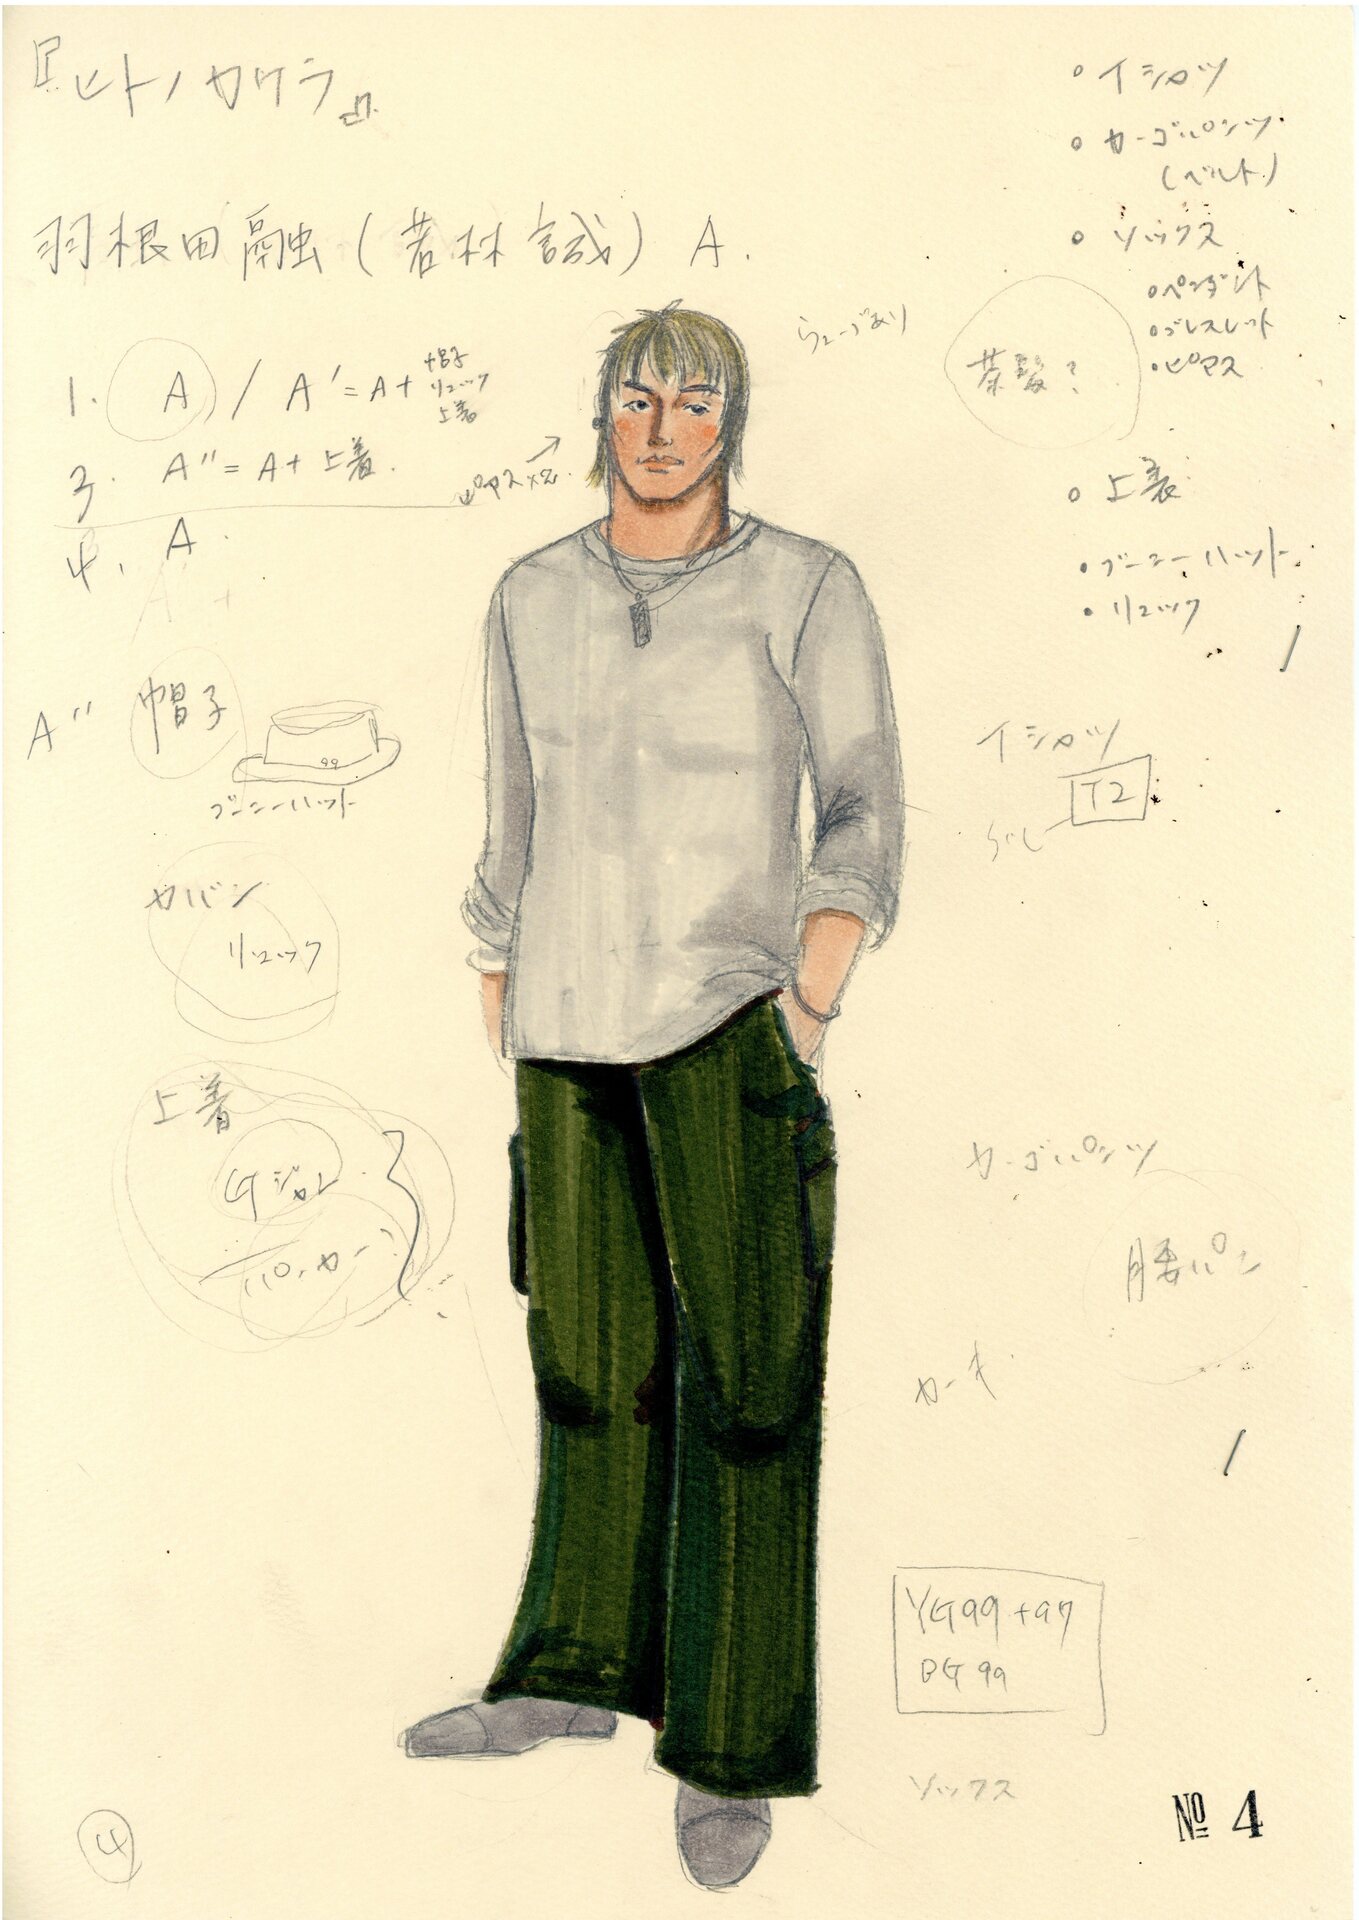 『ヒトノカケラ』
羽根田融(若林誠) A.
1. A / A' = A + 帽子
リュック
上着
3. A'' = A + 上着.
4. A.
ピアス×2.
A'' 帽子
99
ブーニーハット
カバン
リュック
上着
Gジャン
パーカー
・イシャツ
・カーゴパンツ
(ベルト)
・ソックス
・ペンダント
・ブレスレット
・ピアス
茶髪?
・上着
・ブーニーハット
・リュック
イシャツ
T2
カーゴパンツ
腰パン
カーキ
YG99+97
BG99
ソックス
4
№ 4